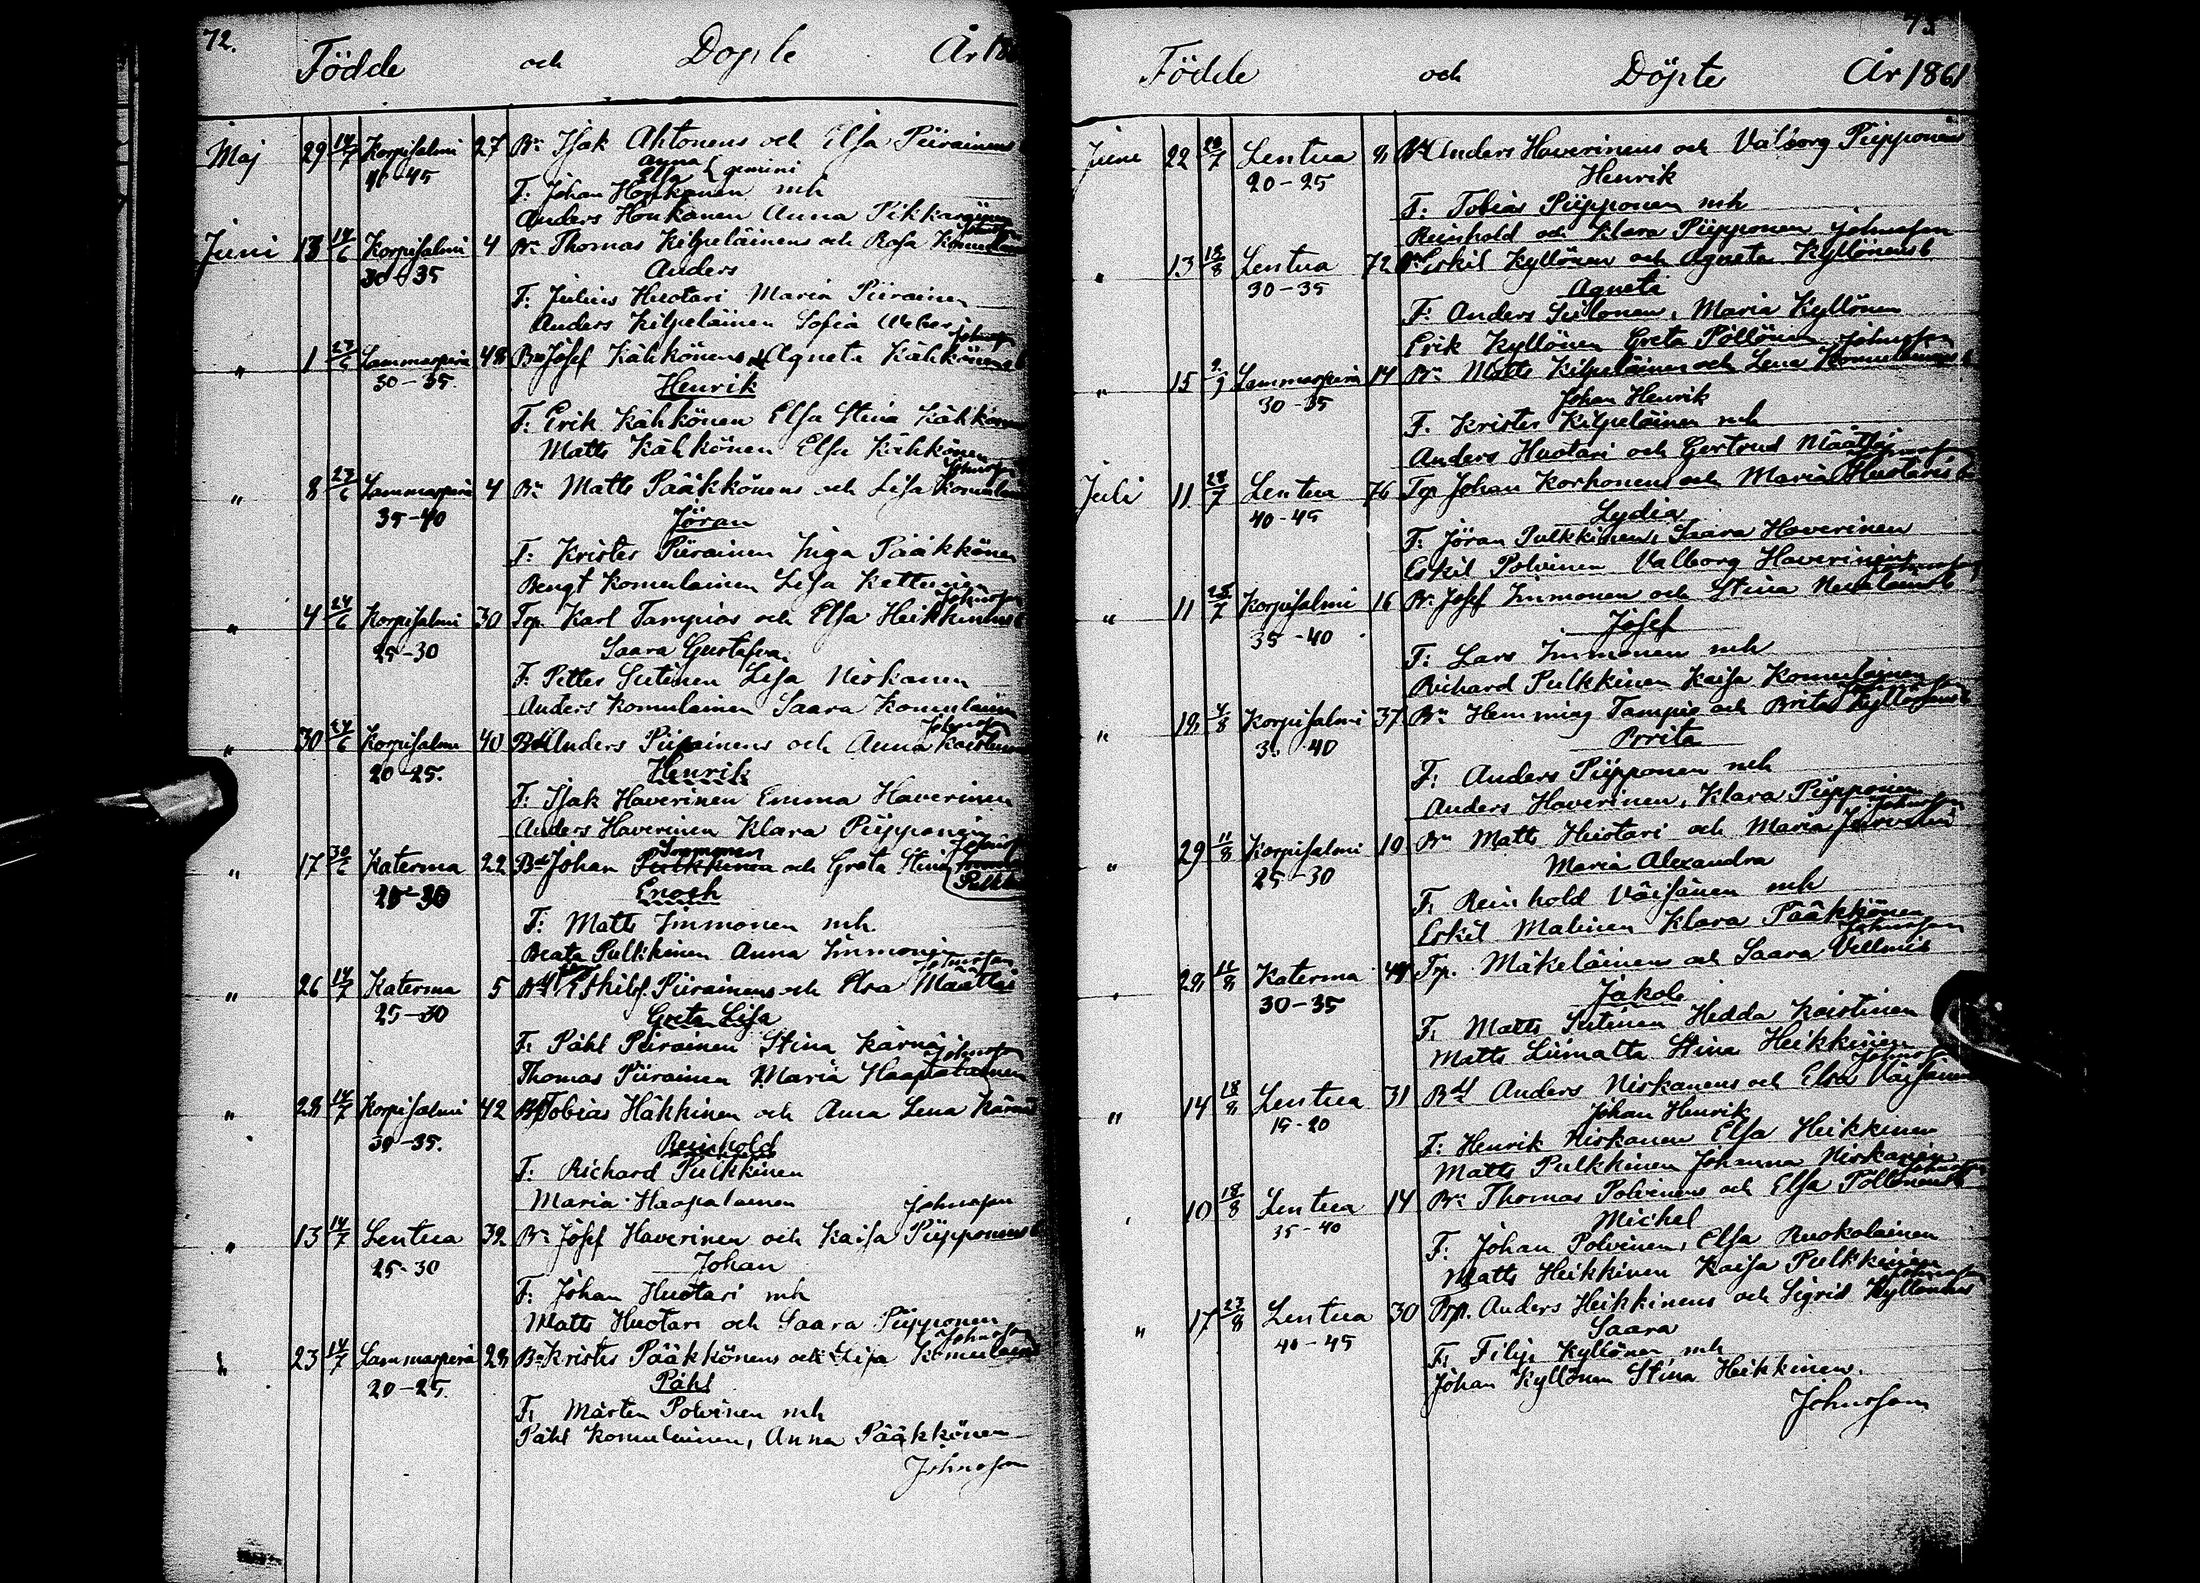 72.
Födde och Döpte År 18
Maj 29 14/7 Korpisalmi 27 Bn Isak Ahtonens och Elsa Piirainens
40-45 Anna
Elsa } gemini
F: Johan Honkanen mh
Anders Honkanen Anna Pikkarainen
Johnsson
Juni 13 14/6 Korpisalmi 4 Bn Thomas Kilpeläinens och Rosa
30-35 Anders
F: Julius Huotari Maria Piirainen
Anders Kilpeläinen Sofia Weber
Johnsson
" 1 23/6 Lammasperä 48 Bn Josef Kähkönens och Agneta Kähkönens
30-35 Henrik
F: Erik Kähkönen Elsa Stina Kähkönen
Matts Kähkönen Elsa Kähkönen
Johnsson
" 8 23/6 Lammasperä 4 Bn Matts Pääkkönens och Lisa
35-40 Jöran
F: Krister Piirainen Inga Pääkkönen
Bengt Komulainen Lisa Kettunen
Johnsson
" 4 24/6 Korpisalmi 30 Trp Karl Tampios och Elsa Heikkinens
25-30 Saara Gustafva
F: Petter Sutinen Lisa Niskanen
Anders Komulainen Saara Komulainen
Johnsson
" 30 24/6 Korpisalmi 40 Anders Piipainens och Anna
20-25. Henrik
F: Isak Haverinen Emma Haverinen
Anders Haverinen Klara Piipponen
Johnsson
Immonen
" 17 30/6 Katerma 22 Johan Pulkkinen och Greta Stina
25-30 Enosh
F: Matts Immonen mh
Beata Pulkkinen Anna Immonen
Johnsson
" 26 14/7 Katerma 5 Piirainens och Elsa Määttäs
25-30 Greta Lisa
F: Påhl Piirainen Stina Kärnä
Thomas Piirainen Maria Haapalainen
Johnsson
" 28 14/7 Korpisalmi 42 Tobias Häkkinen och Anna Lena Kärnäs
30-35. Reinhold
F: Richard Pulkkinen
Maria Haapalainen Johnsson
" 13 14/7 Lentua 32 Bn Josef Haverinen och Kaisa Piipponens
25-30 Johan
F: Johan Huotari mh
Matts Huotari och Saara Piipponen
Johnsson
" 23 14/7 Lammasperä 28 Bn Krister Pääkkönens och Lisa Komulainens
20-25. Påhl
F: Mårten Polvinen mh
Påhl Komulainen, Anna Pääkkönen
Johnsson
73
Födde och Döpte År 1861
Juni 22 20/7 Lentua 8 Anders Haverinens och Valborg Piipponens
20-25 Henrik
F: Tobias Piipponen mh
Reinhold och Klara Piipponen Johnsson
" 13 18/8 Lentua 72 Eskil Kyllönen och Agneta Kyllönens
30-35 Agneta
F: Anders Maria Kyllönen
Erik Kyllönen Greta Pöllönen Johnsson
" 15 Lammasperä 14 Bn Matts Kilpeläinen och Lena Komulainens
30-35 Johan Henrik
F. Krister Kilpeläinen mh
Anders Huotari och Gertrud Määttä
Johnsson
Juli 11 28/7 Lentua 76 Johan Korhonens och Maria Huotaris
40-45 Lydia
F: Jöran Pulkkinen, Saara Haverinen
Eskil Polvinen Valborg Haverinen
Johnsson
" 11 28/7 Korpisalmi 16 Bn Josef Immonen och Stina
35-40 Josef
F: Lars Immonen mh
Richard Pulkkinen Kaisa Komulainen
" 18 4/8 Korpisalmi 37 Bn Hemming Tampio och Brita Kyllönens
35 40 Brita
F: Anders Piipponen mh
Anders Haverinen, Klara Piipponen
Johnsson
" 29 11/8 Korpisalmi 10 Bn Matts Huotari och Maria
25-30 Maria Alexandra
F: Reinhold Väisänen mh
Eskil Malinen Klara Pääkkönen
Johnsson
28 11/8 Katerma 44 Trp. Mäkeläinens och Saara
30-35 Jakob
F: Matts Sutinen Hedda Kaistinen
Matts Liimatta Stina Heikkinen
Johnsson
" 14 18/8 Lentua 31 Anders Niskanens och Elsa Väisänens
15-20 Johan Henrik
F: Henrik Niskanen Elsa Heikkinen
Matts Pulkkinen Johanna Niskanen
Johnsson
" 10 18/8 Lentua 14 Bn Thomas Polvinens och Elsa Pöllönens
35-40 Michel
F: Johan Polvinen, Elsa Ruokolainen
Matts Heikkinen Kaisa Pulkkinen
Johnsson
" 17 23/8 Lentua 30 Trp. Anders Heikkinens och Sigrid Kyllönens
40-45 Saara
F: Filip Kyllönen mh
Johan Kyllönen Stina Heikkinen.
Johnsson